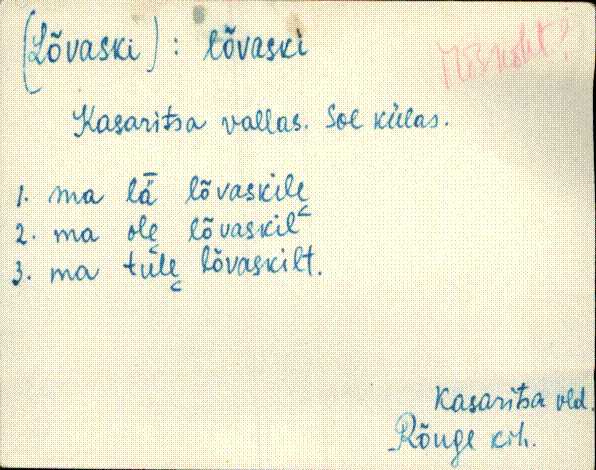 (Lõvaski) : lõvaski
Kasaritsa vallas. Sol külas.
1. ma lǟ lõvaskilę
2. ma olę lõvaskil
3. ma tulę lõvaskilt.
Kasaritsa vld.
Rõuge kih.